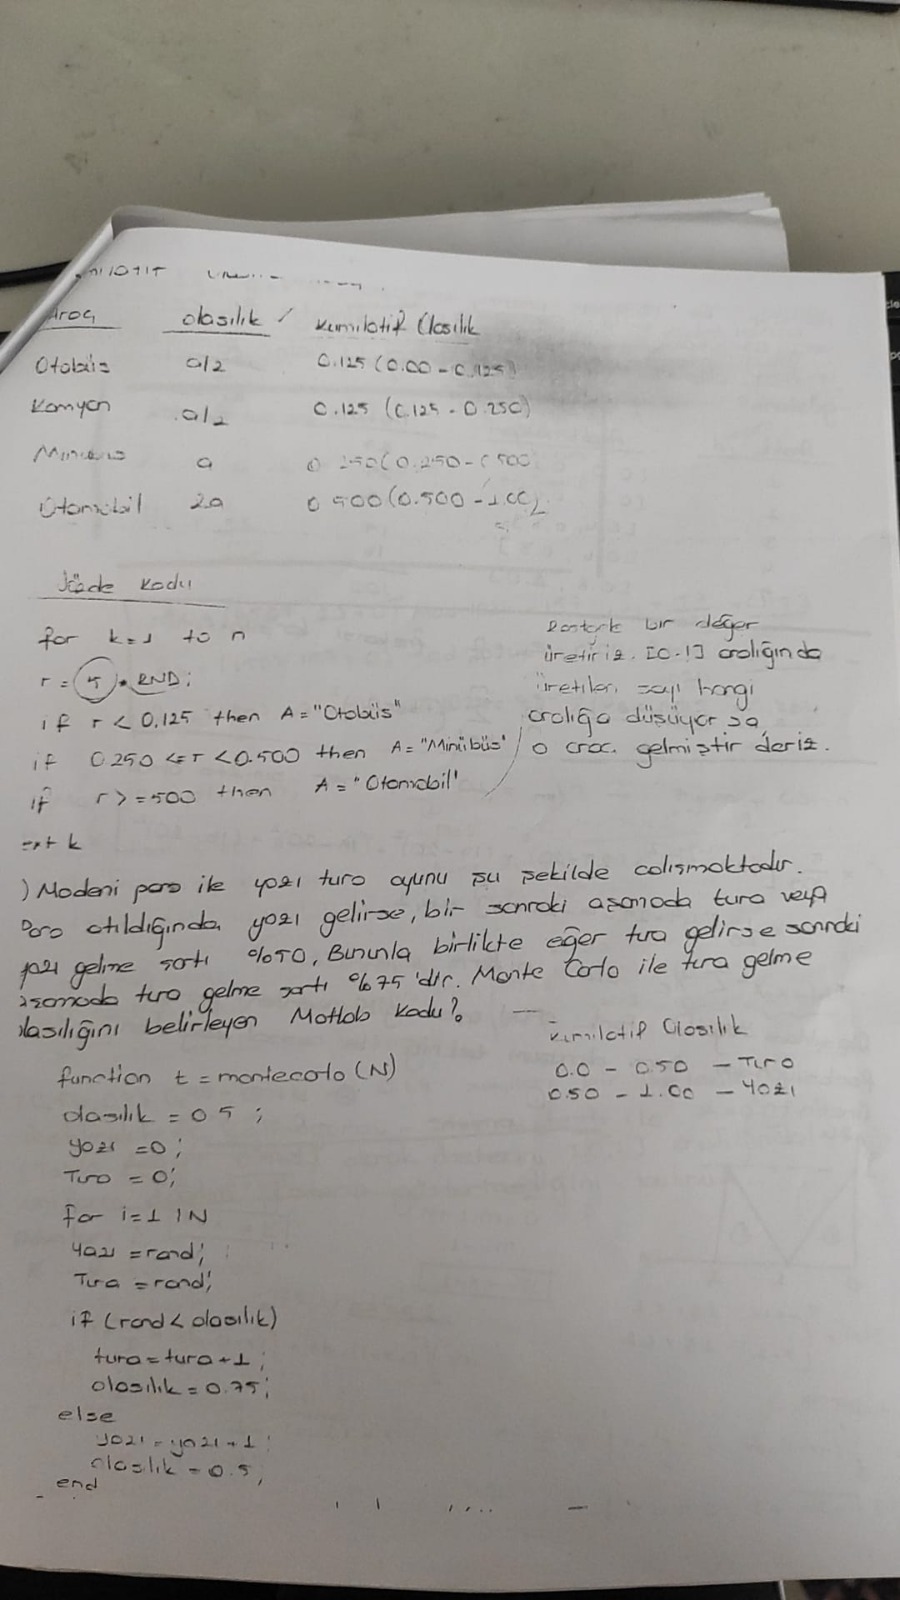 Araç olasılık / Kümilatif Olasılık
Otobüs a/2 0.125 (0.00 - 0.125)
Kamyon a/2 0.125 (0.125 - 0.250)
a 0.250 (0.250 - 0.500)
Otomobil 2a 0.500 (0.500 - 1.00)
Sözde kodu
for k=1 to n
r = RND;
if r < 0.125 then A = "Otobüs"
if 0.250 <= r < 0.500 then A = "Minübüs"
if r >= 500 then A = "Otomobil"
k
bir değer
üretiriz. [0-1] aralığında
üretilen sayı hangi
aralığa düşüyorsa,
o araç gelmiştir deriz.
) Madeni para ile yazı tura oyunu şu şekilde çalışmaktadır.
Para atıldığında, yazı gelirse, bir sonraki aşamada tura veya
yazı gelme şartı %50, Bununla birlikte eğer tura gelirse sonraki
aşamada tura gelme şartı %75'dir. Monte Carlo ile tura gelme
olasılığını belirleyen Matlab kodu?
Kümilatif Olasılık
0.0 - 0.50 - Tura
0.50 - 1.00 - Yazı
function t = montecarlo (N)
olasılık = 0.5 ;
yazı = 0 ;
Tura = 0;
for i=1 : N
Yazı = rand;
Tura = rand;
if (rand < olasılık)
tura = tura + 1 ;
olasılık = 0.75;
else
yazı = yazı + 1 ;
olasılık = 0.5;
end